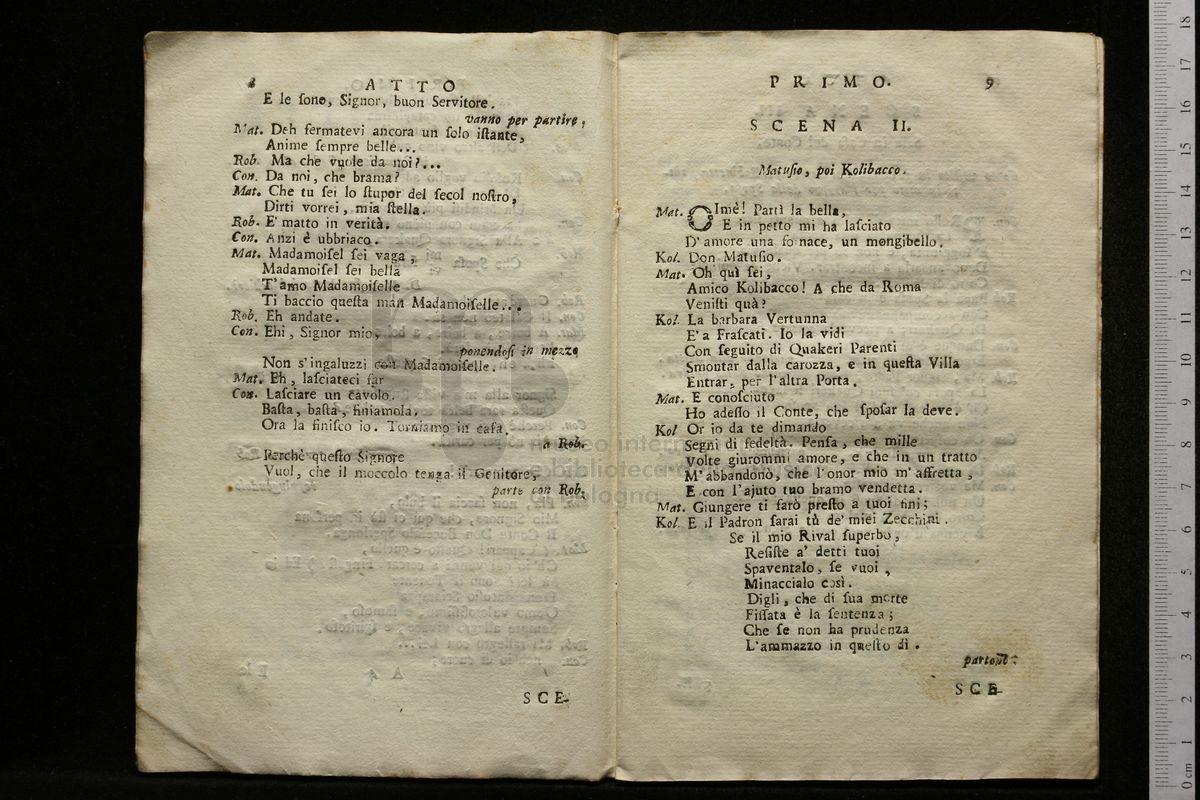 8 ATTO
E le sono, Signor, buon Servitore.
vanno per partire,
Mat. Deh fermatevi ancora un ſolo iſtante,
Anime ſempre belle...
Rob. Ma che vuole da noi?...
Con. Da noi, che brama?
Mat. Che tu ſei lo ſtupor del ſecol noſtro,
Dirti vorrei, mia ſtella.
Rob. E' matto in verità.
Con. Anzi è ubbriaco.
Mat. Madamoiſel ſei vaga,
Madamoiſel ſei bella
T'amo Madamoiſelle
Ti baccio queſta man Madamoiſelle...
Rob. Eh andate.
Con. Ehi, Signor mio,
ponendoſi in mezzo
Non s'ingaluzzi con Madamoiſelle.
Mat. Eh, laſciateci far
Con. Laſciare un cavolo.
Baſta, baſta, finiamola,
Ora la finiſco io. Torniamo in caſa.
a Rob.
Perchè queſto Signore
Vuol, che il moccolo tenga il Genitore,
parte con Rob.
SCE-
PRIMO. 9
SCENA II.
Matuſio, poi Kolibacco.
Mat. OImè! Partì la bella,
E in petto mi ha laſciato
D'amore una fo nace, un mongibello.
Kol. Don Matuſio.
Mat. Oh quì ſei,
Amico Kolibacco! A che da Roma
Veniſti quà?
Kol. La barbara Vertunna
E' a Fraſcati. Io la vidi
Con ſeguito di Quakeri Parenti
Smontar dalla carozza, e in queſta Villa
Entrar, per l'altra Porta.
Mat. E conoſciuto
Ho adeſſo il Conte, che ſpoſar la deve.
Kol Or io da te dimando
Segni di fedeltà. Penſa, che mille
Volte giurommi amore, e che in un tratto
M'abbandonò, che l'onor mio m'affretta,
E con l'ajuto tuo bramo vendetta.
Mat. Giungere ti farò preſto a tuoi fini;
Kol. E il Padron ſarai tù de' miei Zecchini.
Se il mio Rival ſuperbo,
Reſiſte a' detti tuoi
Spaventalo, ſe vuoi,
Minaccialo così.
Digli, che di ſua morte
Fiſſata è la ſentenza;
Che ſe non ha prudenza
L'ammazzo in queſto dì.
partono.
SCE-